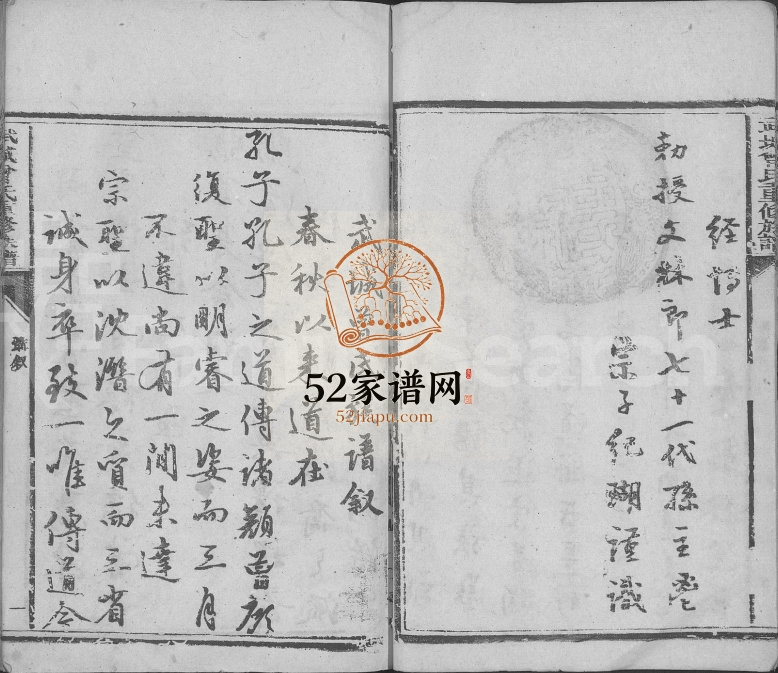 武城曾氏重修族譜
經博士
勅授文林郎七十一代孫主鬯
宗子紀瑚謹識
武城曾氏族譜叙
春秋以來道在
孔子孔子之道傳諸顏曾顧
復聖以明睿之姿而三月
不違尚有一間未達
宗聖以沈潛之質而三省
誠身卒致一唯傳道今
武城曾氏重修族譜
叙
一
52家谱网
52jiapu.com